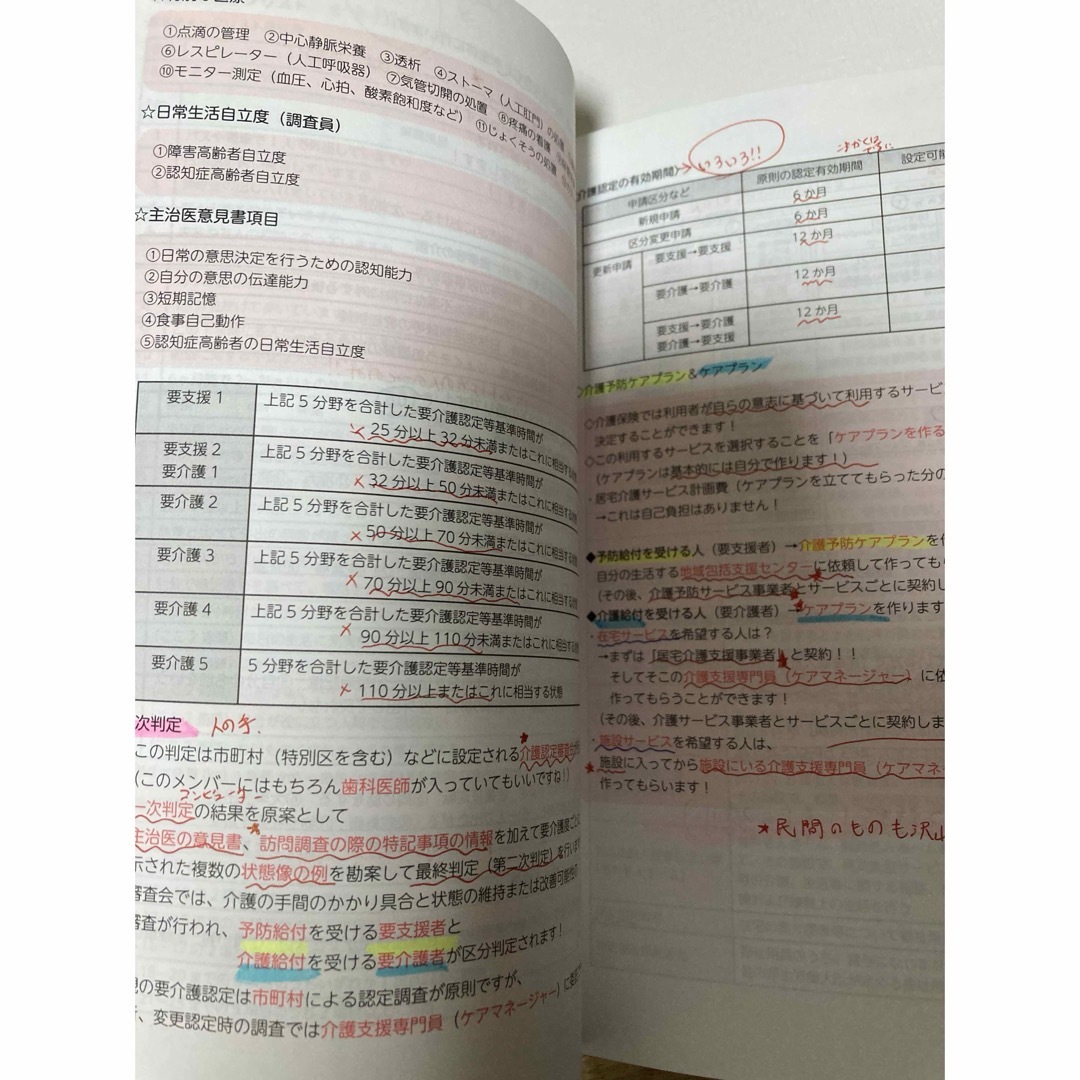 ①点滴の管理 ②中心静脈栄養 ③透析 ④ストーマ（人工肛門）の処置
⑥レスピレーター（人工呼吸器） ⑦気管切開の処置 ⑧疼痛の看護
⑩モニター測定（血圧、心拍、酸素飽和度など） ⑪じょくそうの処置
☆日常生活自立度（調査員）
①障害高齢者自立度
②認知症高齢者自立度
☆主治医意見書項目
①日常の意思決定を行うための認知能力
②自分の意思の伝達能力
③短期記憶
④食事自己動作
⑤認知症高齢者の日常生活自立度
要支援1 上記5分野を合計した要介護認定等基準時間が
25分以上32分未満またはこれに相当する
要支援2
要介護1 上記5分野を合計した要介護認定等基準時間が
32分以上50分未満またはこれに相当する
要介護2 上記5分野を合計した要介護認定等基準時間が
50分以上70分未満またはこれに相当する
要介護3 上記5分野を合計した要介護認定等基準時間が
70分以上90分未満またはこれに相当する
要介護4 上記5分野を合計した要介護認定等基準時間が
90分以上110分未満またはこれに相当する
要介護5 5分野を合計した要介護認定等基準時間が
110分以上またはこれに相当する状態
次判定 人の手.
この判定は市町村（特別区を含む）などに設定される介護認定審査会
（このメンバーにはもちろん歯科医師が入っていてもいいですね！）
コンピューター
一次判定の結果を原案として
主治医の意見書、訪問調査の際の特記事項の情報を加えて要介護度ごと
示された複数の状態像の例を勘案して最終判定（第二次判定）を行い
審査会では、介護の手間のかかり具合と状態の維持または改善可能性
審査が行われ、予防給付を受ける要支援者と
介護給付を受ける要介護者が区分判定されます！
の要介護認定は市町村による認定調査が原則ですが、
、変更認定時の調査では介護支援専門員（ケアマネージャー）に
介護認定の有効期間〉→いろいろ!!
申請区分など 原則の認定有効期間 設定可能
新規申請 6か月
区分変更申請 6か月
更新申請 要支援→要支援 12か月
要介護→要介護 12か月
要支援→要介護 12か月
要介護→要支援
介護予防ケアプラン&ケアプラン
◇介護保険では利用者が自らの意志に基づいて利用するサービ
決定することができます！
◇この利用するサービスを選択することを「ケアプランを作る
（ケアプランは基本的には自分で作ります！）
・居宅介護サービス計画費（ケアプランを立ててもらった分の
→これは自己負担はありません！
◆予防給付を受ける人（要支援者）→介護予防ケアプランを作
自分の生活する地域包括支援センターに依頼して作っても
（その後、介護予防サービス事業者とサービスごとに契約し
◆介護給付を受ける人（要介護者）→ケアプランを作ります
・在宅サービスを希望する人は？
→まずは「居宅介護支援事業者」と契約！！
そしてそこの介護支援専門員（ケアマネージャー）に依
作ってもらうことができます！
（その後、介護サービス事業者とサービスごとに契約しま
・施設サービスを希望する人は、
施設に入ってから施設にいる介護支援専門員（ケアマネー
作ってもらいます！
★民間のものも沢山